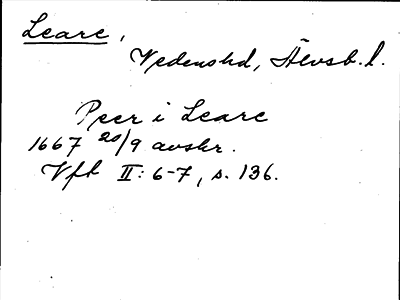 Leare,
Vedenshd, Älvsb. l.
Peer i Leare
1667 20/9 avskr.
Vft II: 6-7, s. 136.